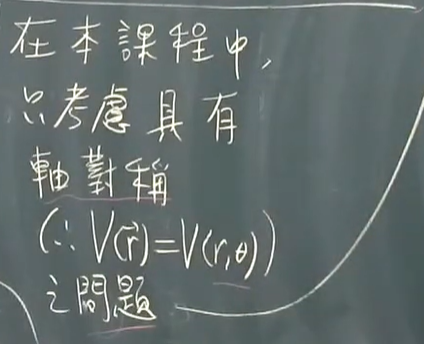 在本課程中,
只考慮具有
軸對稱
(∴ V(r⃗)=V(r,θ))
之問題